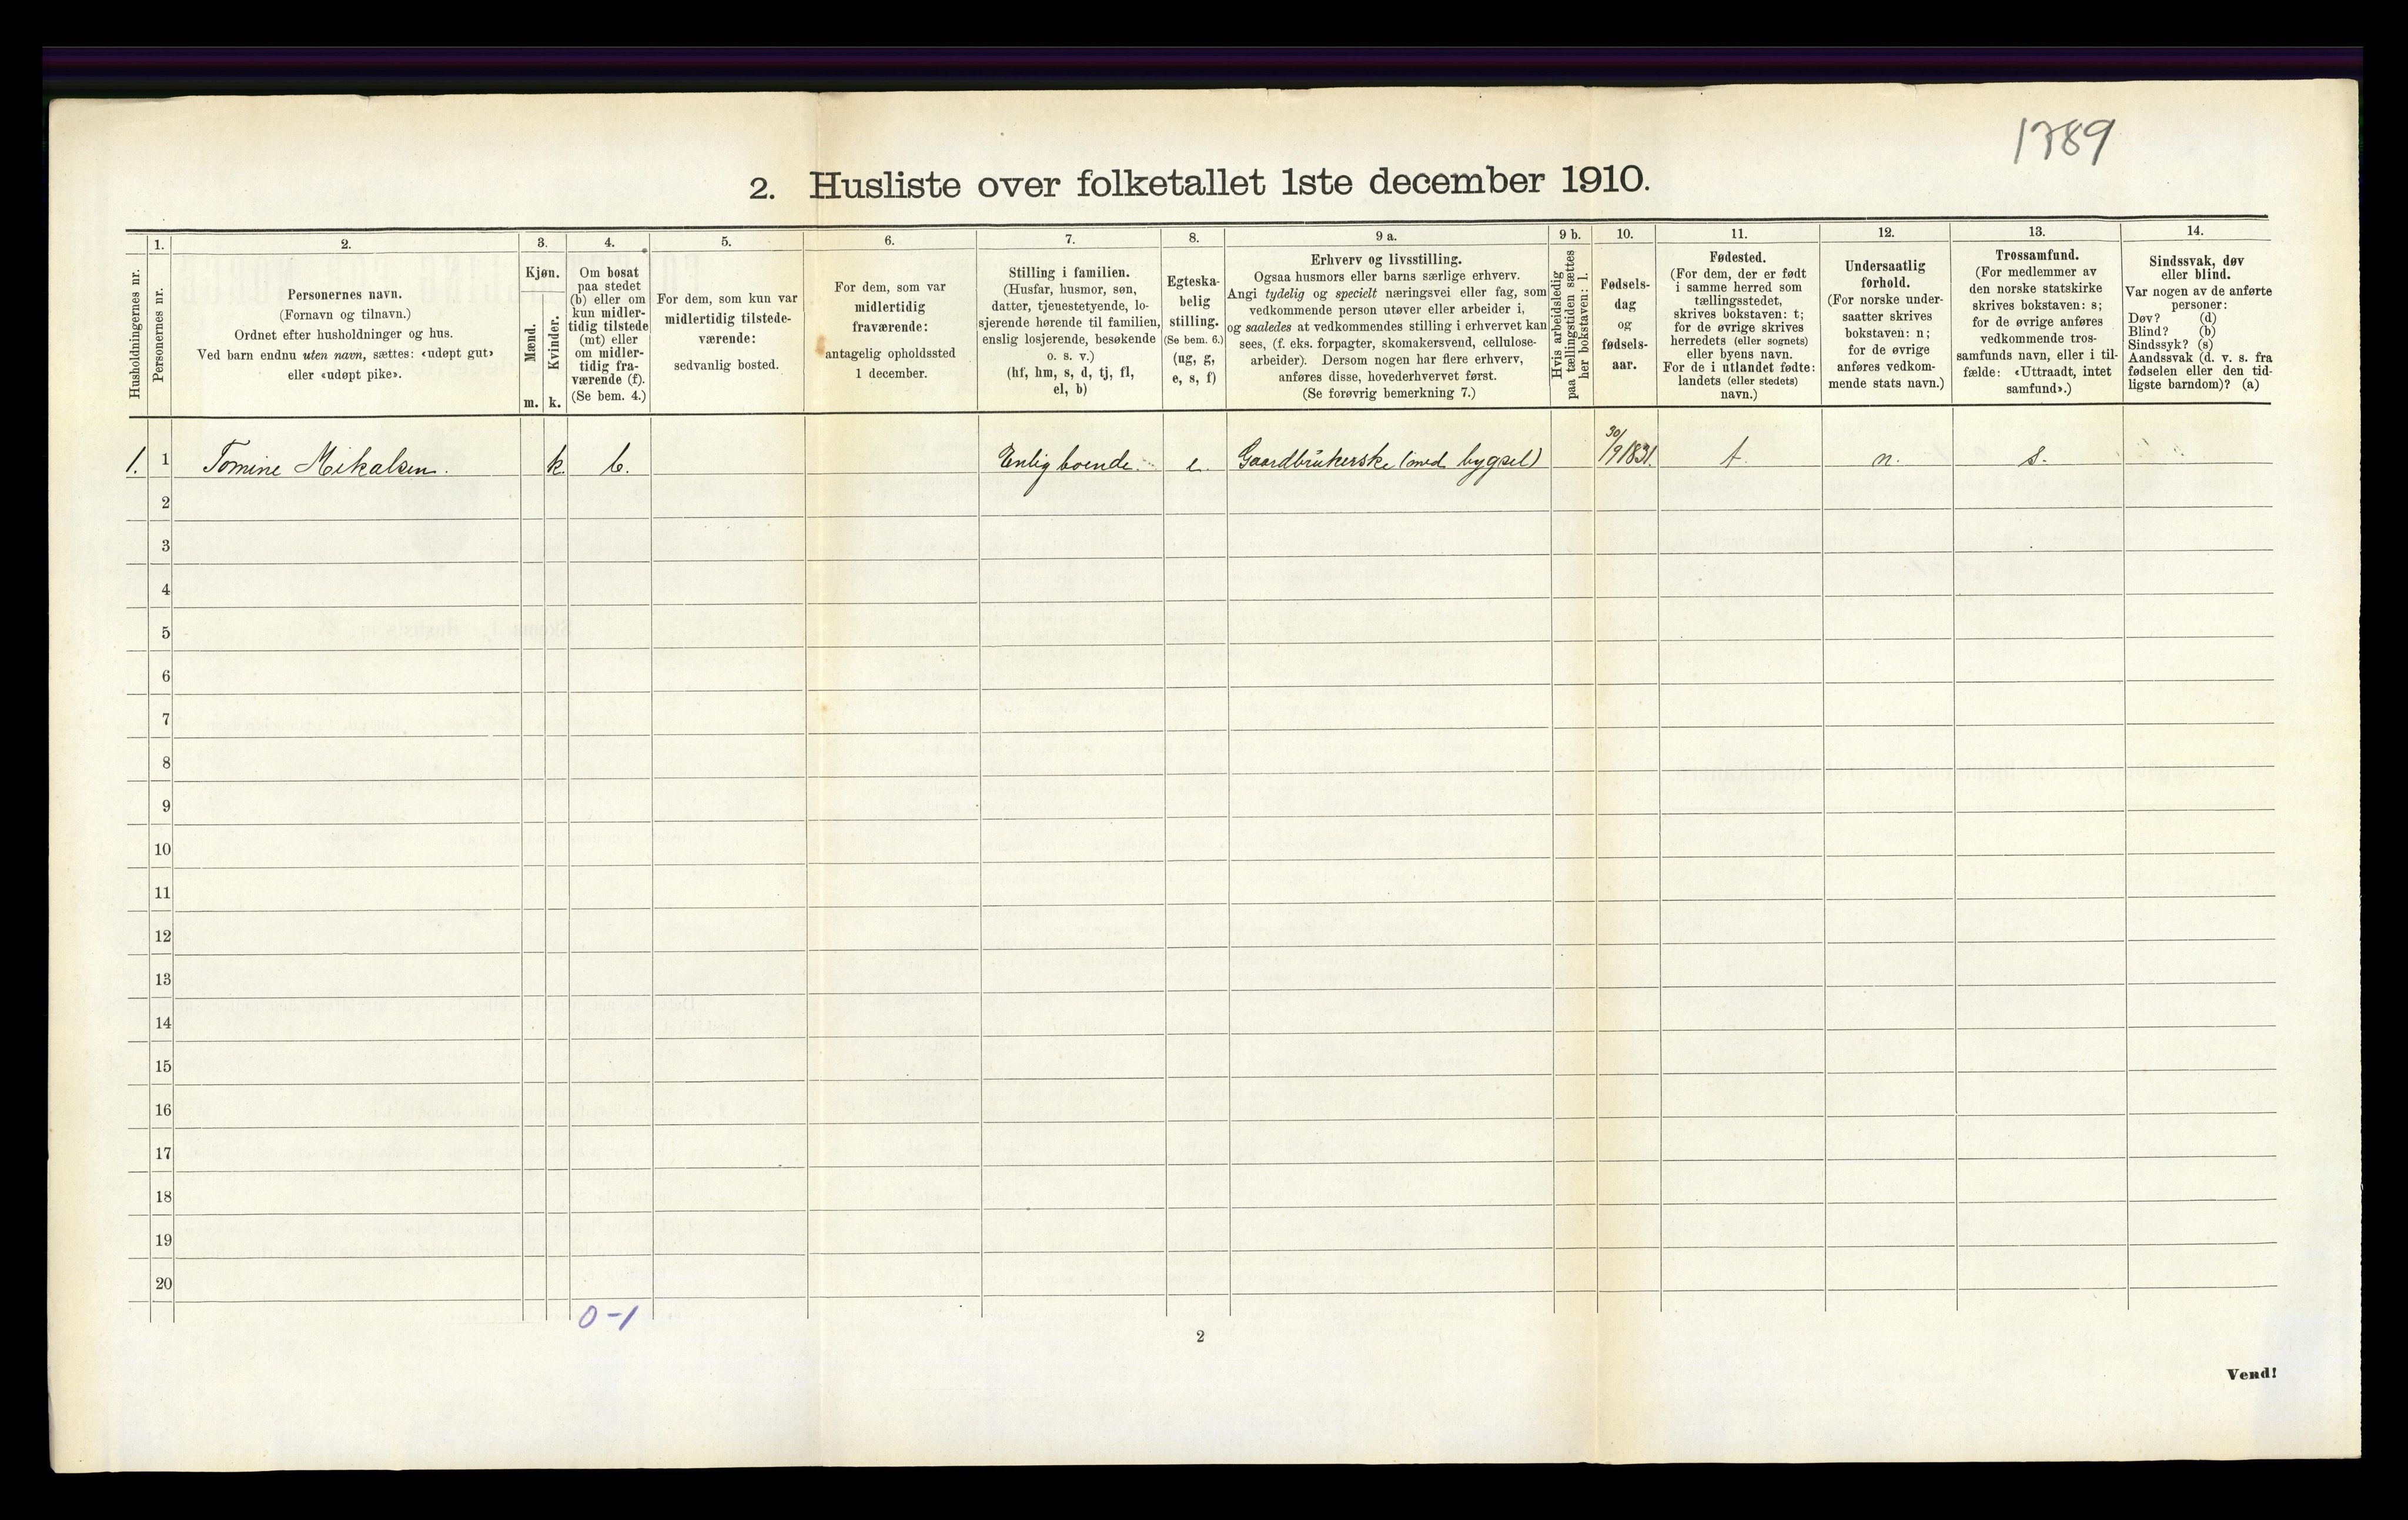 1789
2. Husliste over folketallet 1ste december 1910.
Husholdningernes nr.
1.
Personernes nr.
2.
Personernes navn.
(Fornavn og tilnavn.)
Ordnet efter husholdninger og hus.
Ved barn endnu uten navn, sættes: «udøpt gut»
eller «udøpt pike».
3.
Kjøn.
Mænd.
m.
Kvinder.
k.
4.
Om bosat
paa stedet
(b) eller om
kun midler-
tidig tilstede
(mt) eller
om midler-
tidig fra-
værende (f).
(Se bem. 4.)
5.
For dem, som kun var
midlertidig tilstede-
værende:
sedvanlig bosted.
6.
For dem, som var
midlertidig
fraværende:
antagelig opholdssted
1 december.
7.
Stilling i familien.
(Husfar, husmor, søn,
datter, tjenestetyende, lo-
sjerende hørende til familien,
enslig losjerende, besøkende
o. s. v.)
(hf, hm, s, d, tj, fl,
el, b)
8.
Egteska-
belig
stilling.
(Se bem. 6.)
(ug, g,
e, s, f)
9 a.
Erhverv og livsstilling.
Ogsaa husmors eller barns særlige erhverv.
Angi tydelig og specielt næringsvei eller fag, som
vedkommende person utøver eller arbeider i,
og saaledes at vedkommendes stilling i erhvervet kan
sees, (f. eks. forpagter, skomakersvend, cellulose-
arbeider). Dersom nogen har flere erhverv,
anføres disse, hovederhvervet først.
(Se forøvrig bemerkning 7.)
9 b.
Hvis arbeidsledig
paa tællingstiden sættes
her bokstaven: l.
10.
Fødsels-
dag
og
fødsels-
aar.
11.
Fødested.
(For dem, der er født
i samme herred som
tællingsstedet,
skrives bokstaven: t;
for de øvrige skrives
herredets (eller sognets)
eller byens navn.
For de i utlandet fødte:
landets (eller stedets)
navn.)
12.
Undersaatlig
forhold.
(For norske under-
saatter skrives
bokstaven: n;
for de øvrige
anføres vedkom-
mende stats navn.)
13.
Trossamfund.
(For medlemmer av
den norske statskirke
skrives bokstaven: s;
for de øvrige anføres
vedkommende tros-
samfunds navn, eller i til-
fælde: «Uttraadt, intet
samfund».)
14.
Sindssvak, døv
eller blind.
Var nogen av de anførte
personer:
Døv? (d)
Blind? (b)
Sindssyk? (s)
Aandssvak (d. v. s. fra
fødselen eller den tid-
ligste barndom)? (a)
1. 1 Tomine Mikalsen. k. b. Enlig boende. e. Gaardbrukerske (med bygsel) 30/9 1831. t. n. s.
2
3
4
5
6
7
8
9
10
11
12
13
14
15
16
17
18
19
20
0-1
2
Vend!